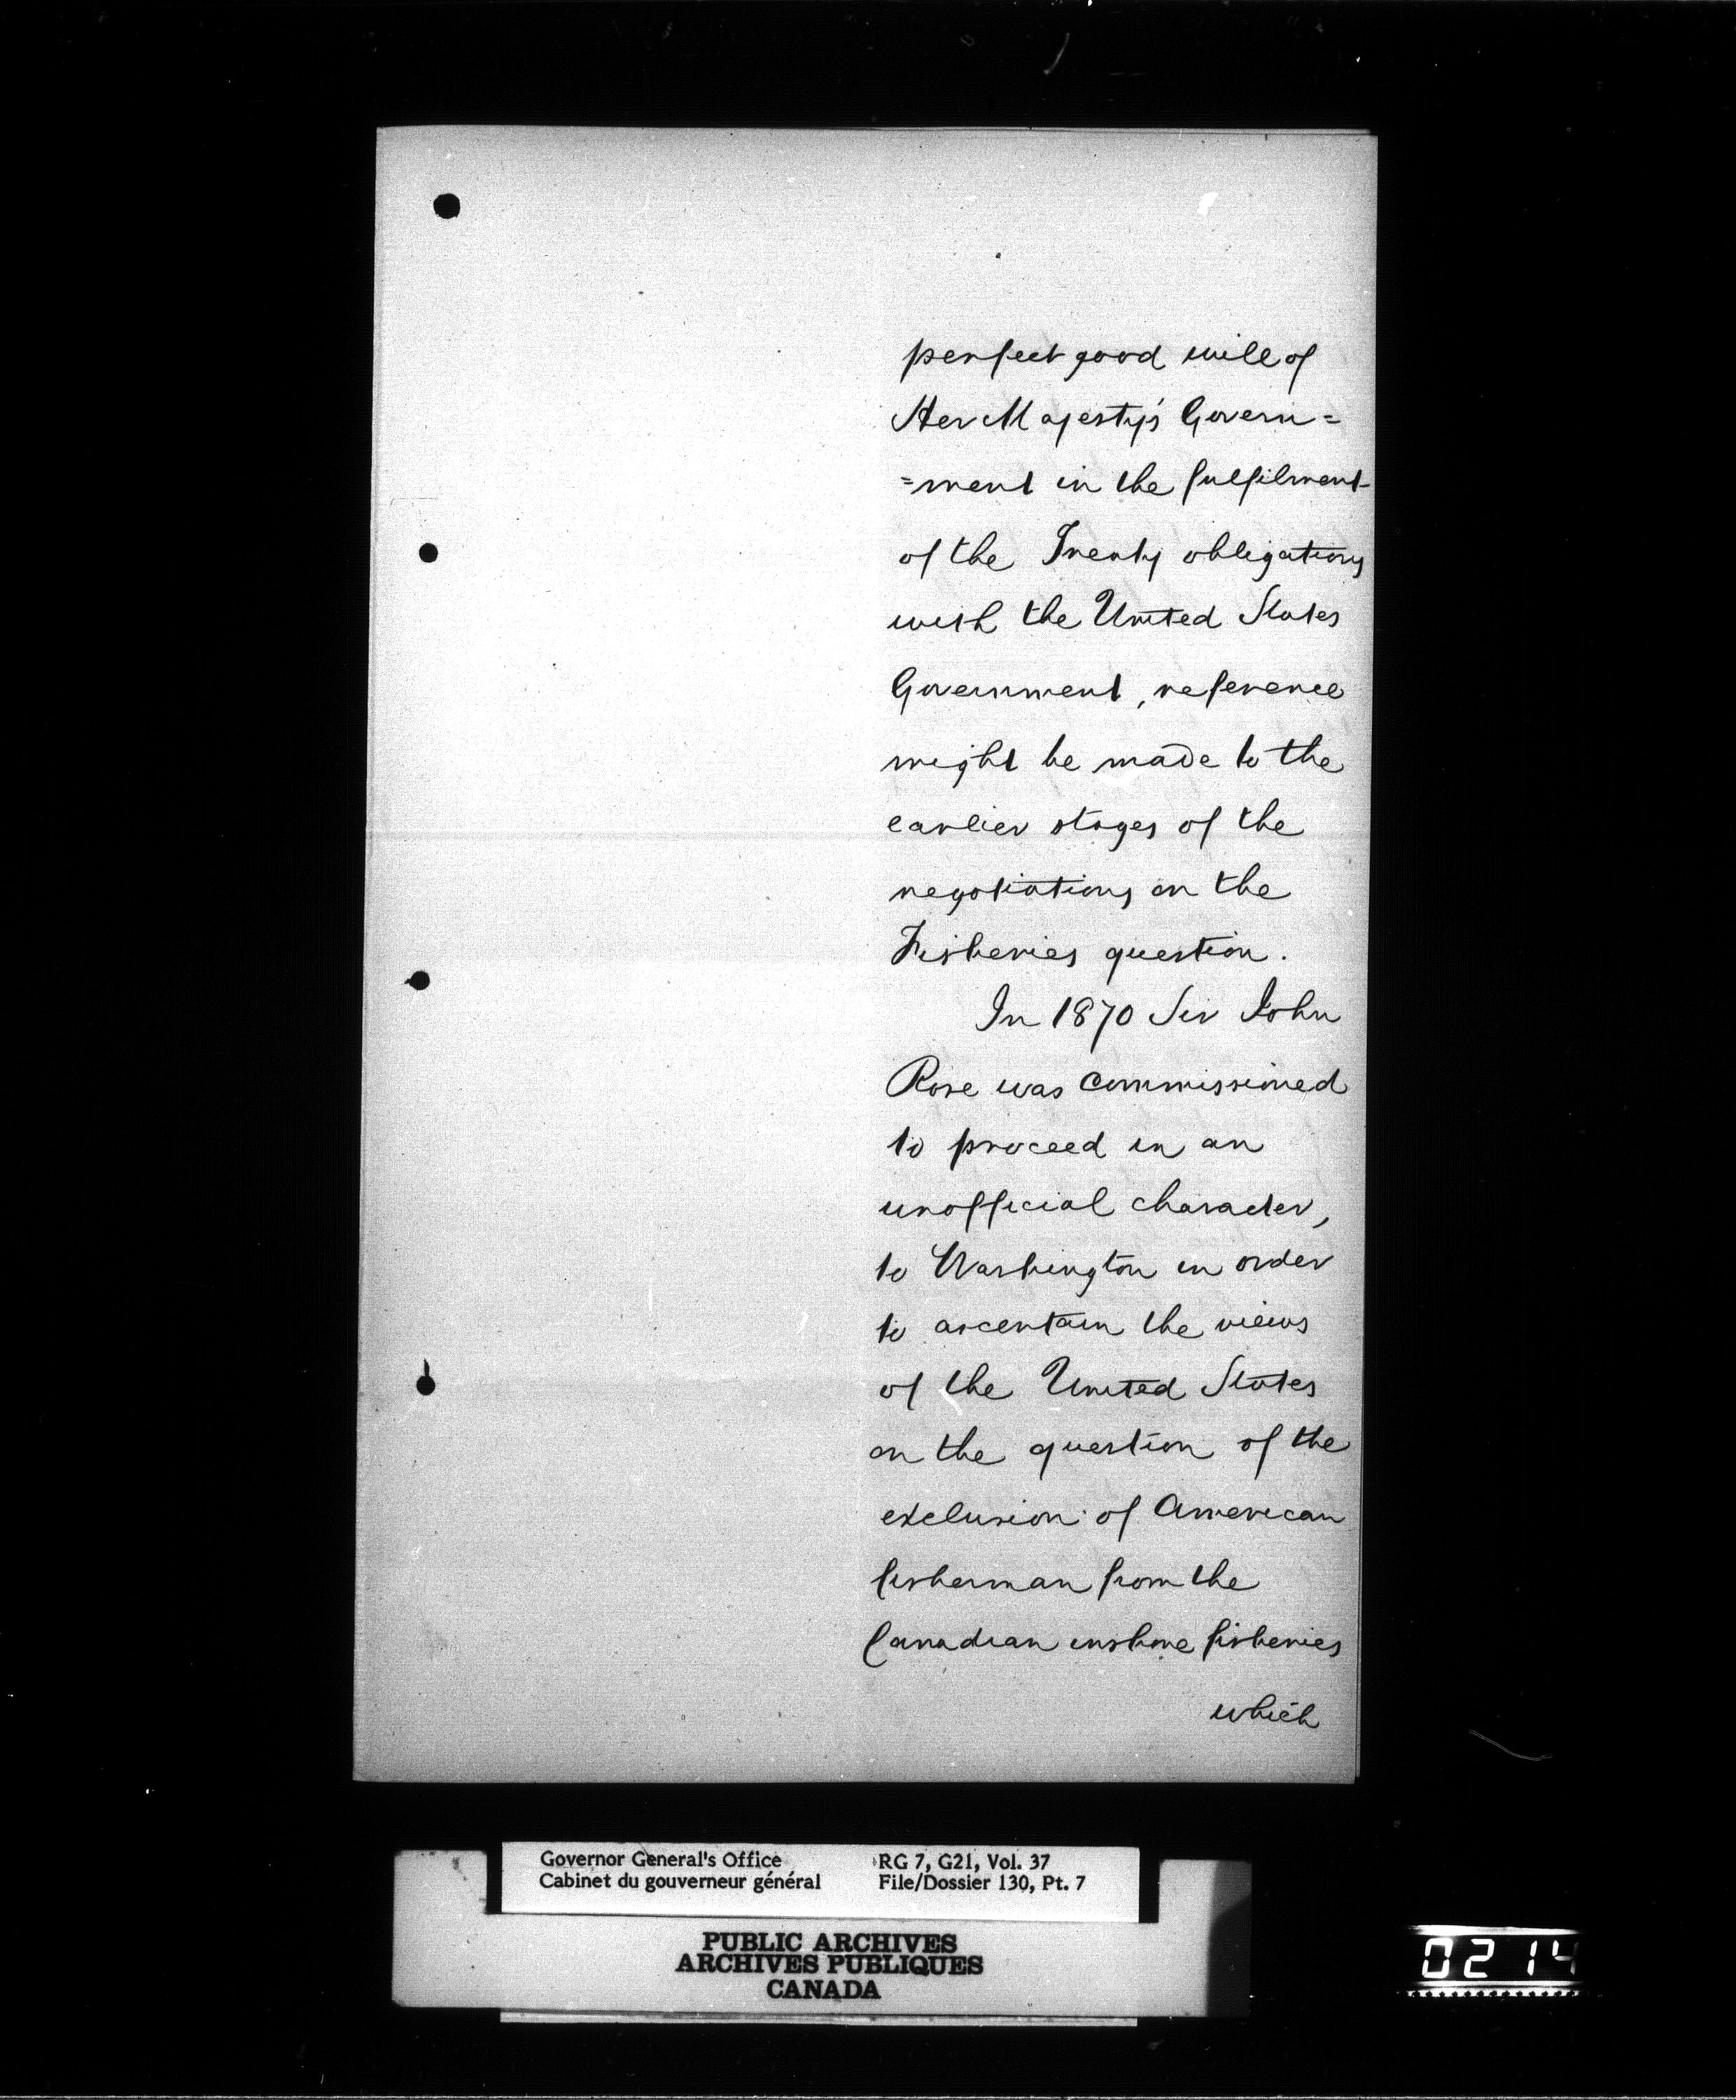 perfect good will of
Her Majesty's Govern=
=ment in the fulfilment
of the Treaty obligations
with the United States
Government, reference
might be made to the
earlier stages of the
negotiations on the
Fisheries question.
In 1870 Sir John
Rose was commissioned
to proceed in an
unofficial character,
to Washington in order
to ascertain the views
of the United States
on the question of the
exclusion of American
fisherman from the
Canadian inshore fisheries
which
Governor General's Office RG 7, G21, Vol. 37
Cabinet du gouverneur général File/Dossier 130, Pt. 7
PUBLIC ARCHIVES
ARCHIVES PUBLIQUES
CANADA
0214